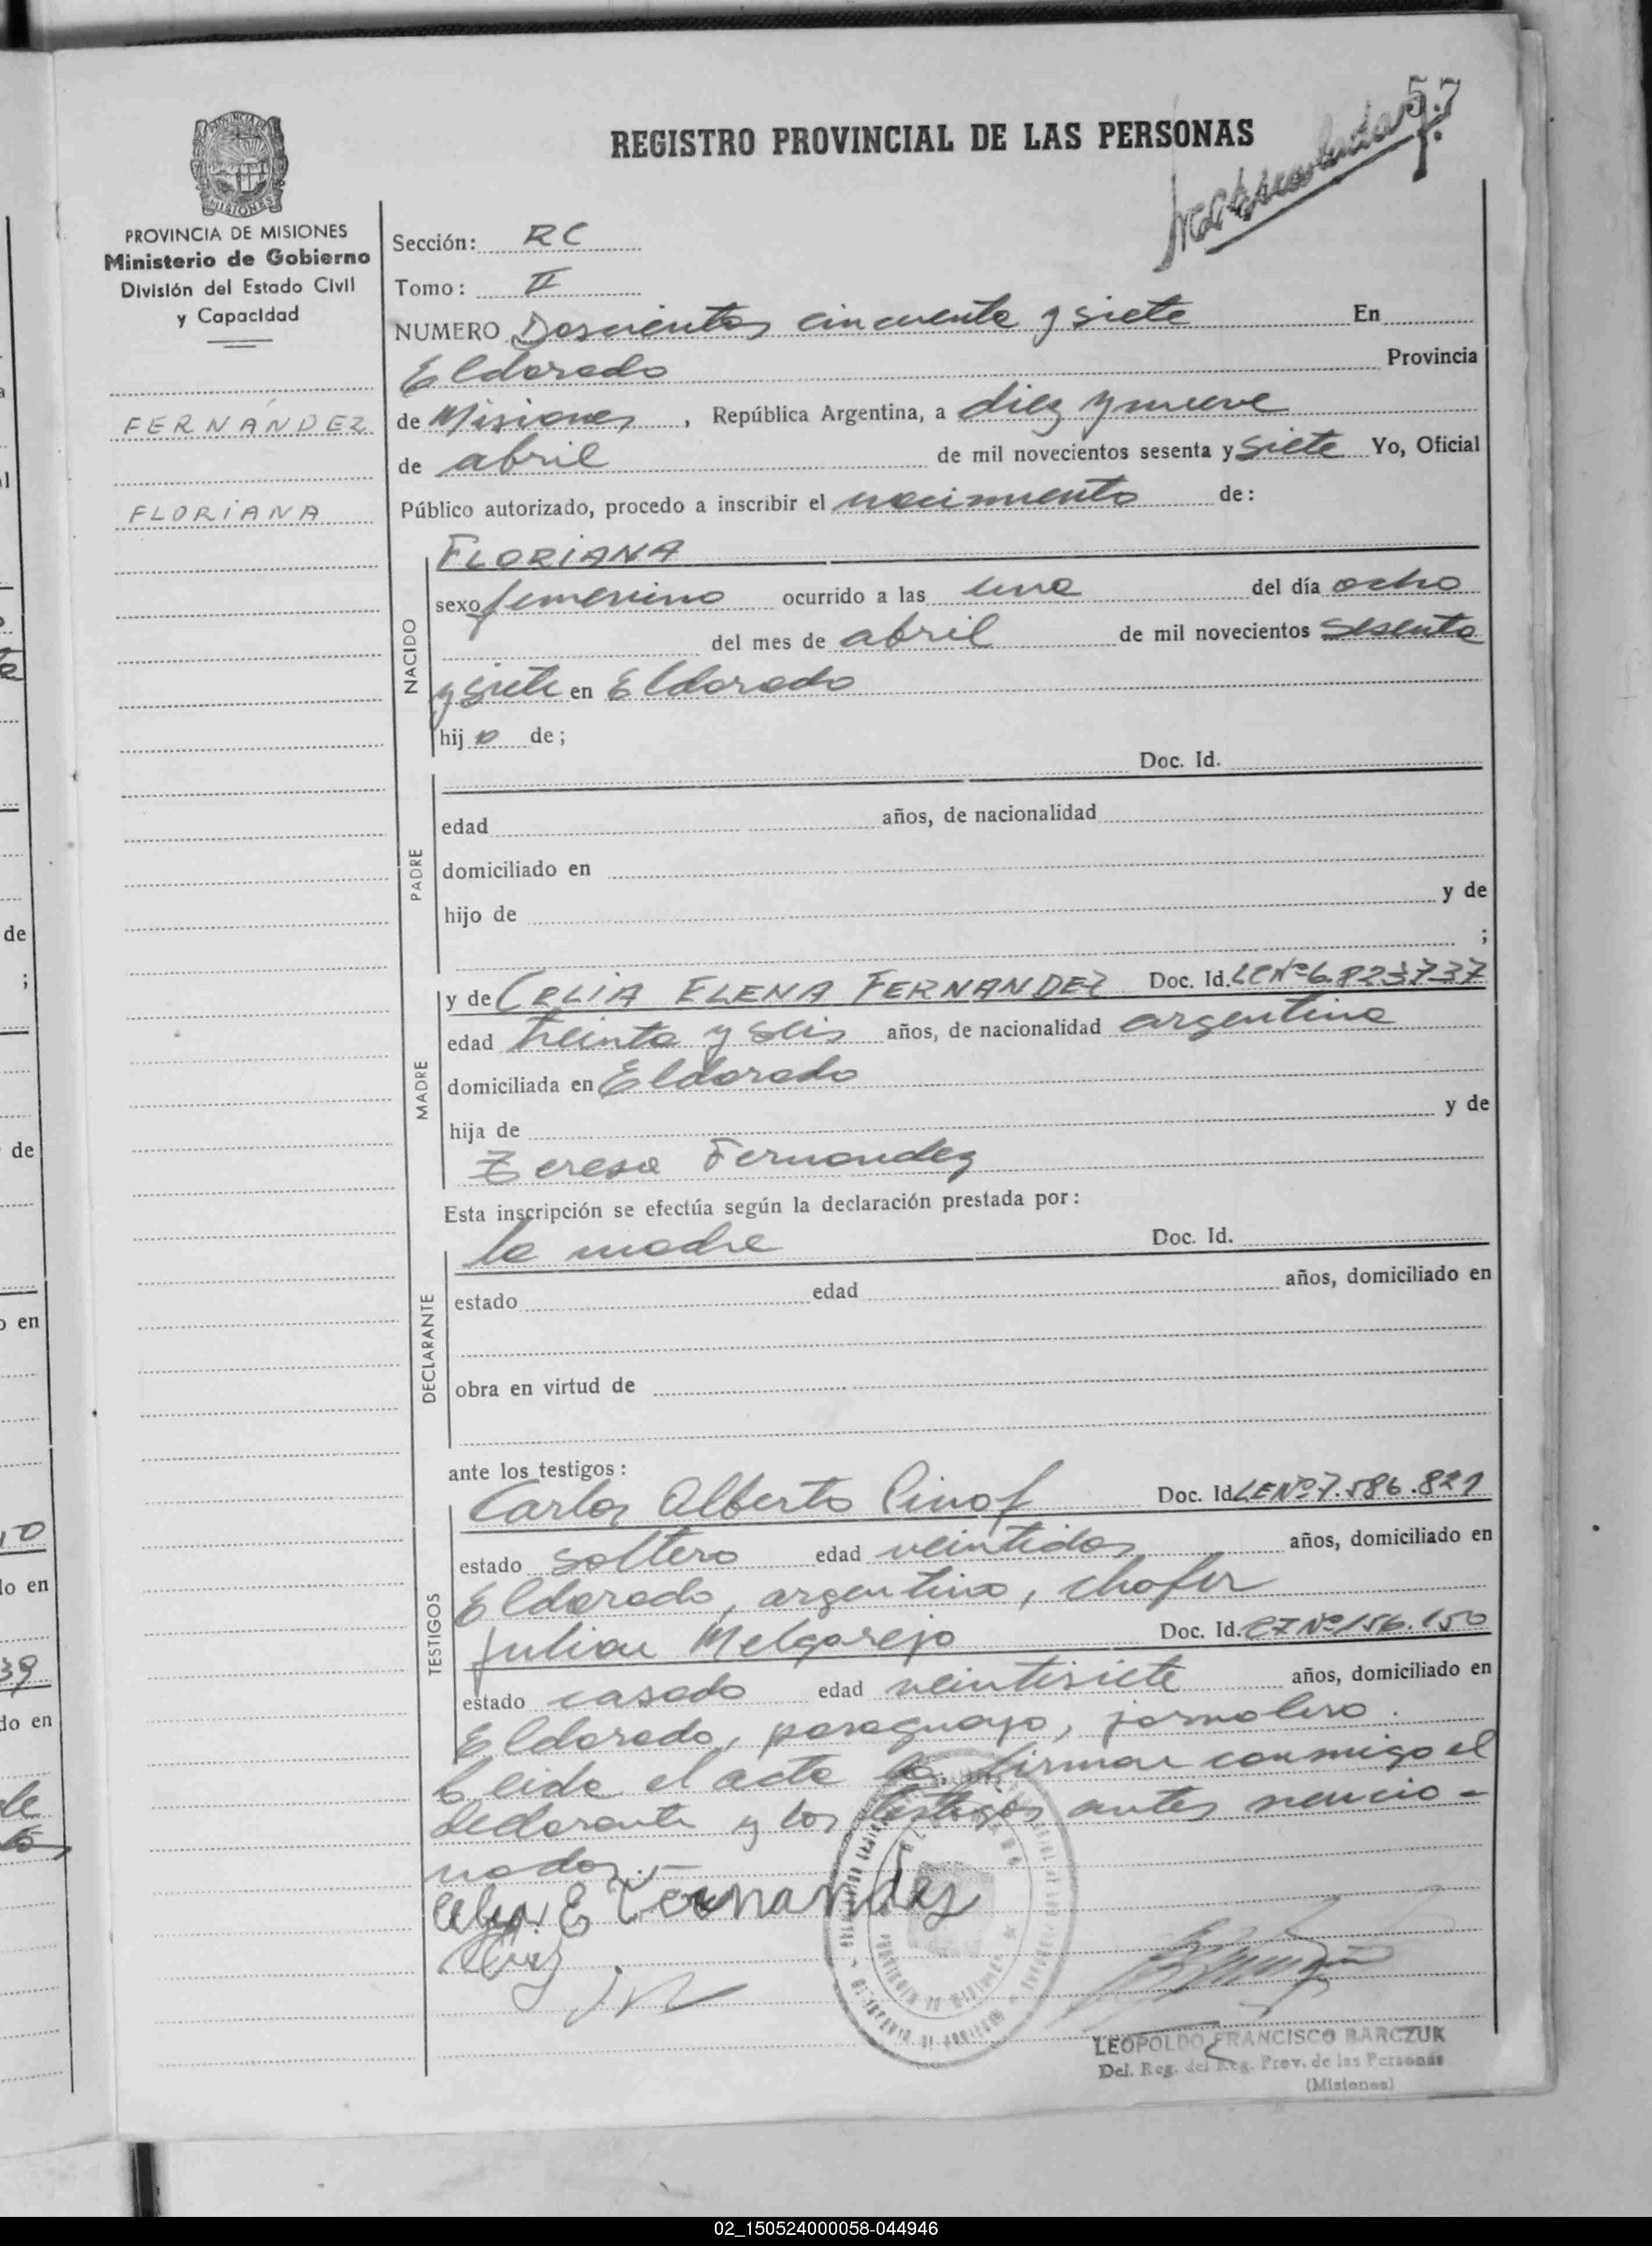 57
REGISTRO PROVINCIAL DE LAS PERSONAS
PROVINCIA DE MISIONES
Ministerio de Gobierno
División del Estado Civil
y Capacidad
FERNÁNDEZ
FLORIANA
Sección: RC
Tomo: II
NUMERO Doscientos cincuenta y siete En
Eldorado Provincia
de Misiones, República Argentina, a diez y nueve
de abril de mil novecientos sesenta y siete Yo, Oficial
Público autorizado, procedo a inscribir el nacimiento de:
NACIDO
FLORIANA
sexo femenino ocurrido a las una del día ocho
del mes de abril de mil novecientos sesenta
y siete en Eldorado
hij de;
PADRE
Doc. Id.
edad años, de nacionalidad
domiciliado en
hijo de y de
;
MADRE
y de CELIA ELENA FERNANDEZ Doc. Id. LC Nº 6.823.737
edad treinta y seis años, de nacionalidad argentina
domiciliada en Eldorado
hija de y de
Teresa Fernandez
Esta inscripción se efectúa según la declaración prestada por:
DECLARANTE
la madre Doc. Id.
estado edad años, domiciliado en
obra en virtud de
ante los testigos:
TESTIGOS
Carlos Alberto Doc. Id. LE Nº 7.586.821
estado soltero edad veintidos años, domiciliado en
Eldorado, argentino, chofer
Julian Melgarejo Doc. Id. Nº 156.150
estado casado edad veintisiete años, domiciliado en
Eldorado, paraguayo, jornalero.
Leida el acta la firman conmigo el
declarante y los testigos antes mencio-
nados.-
Celia E Fernandez
LEOPOLDO FRANCISCO BARCZUK
Del. Reg. del Reg. Prov. de las Personas
(Misiones)
02_150524000058-044946